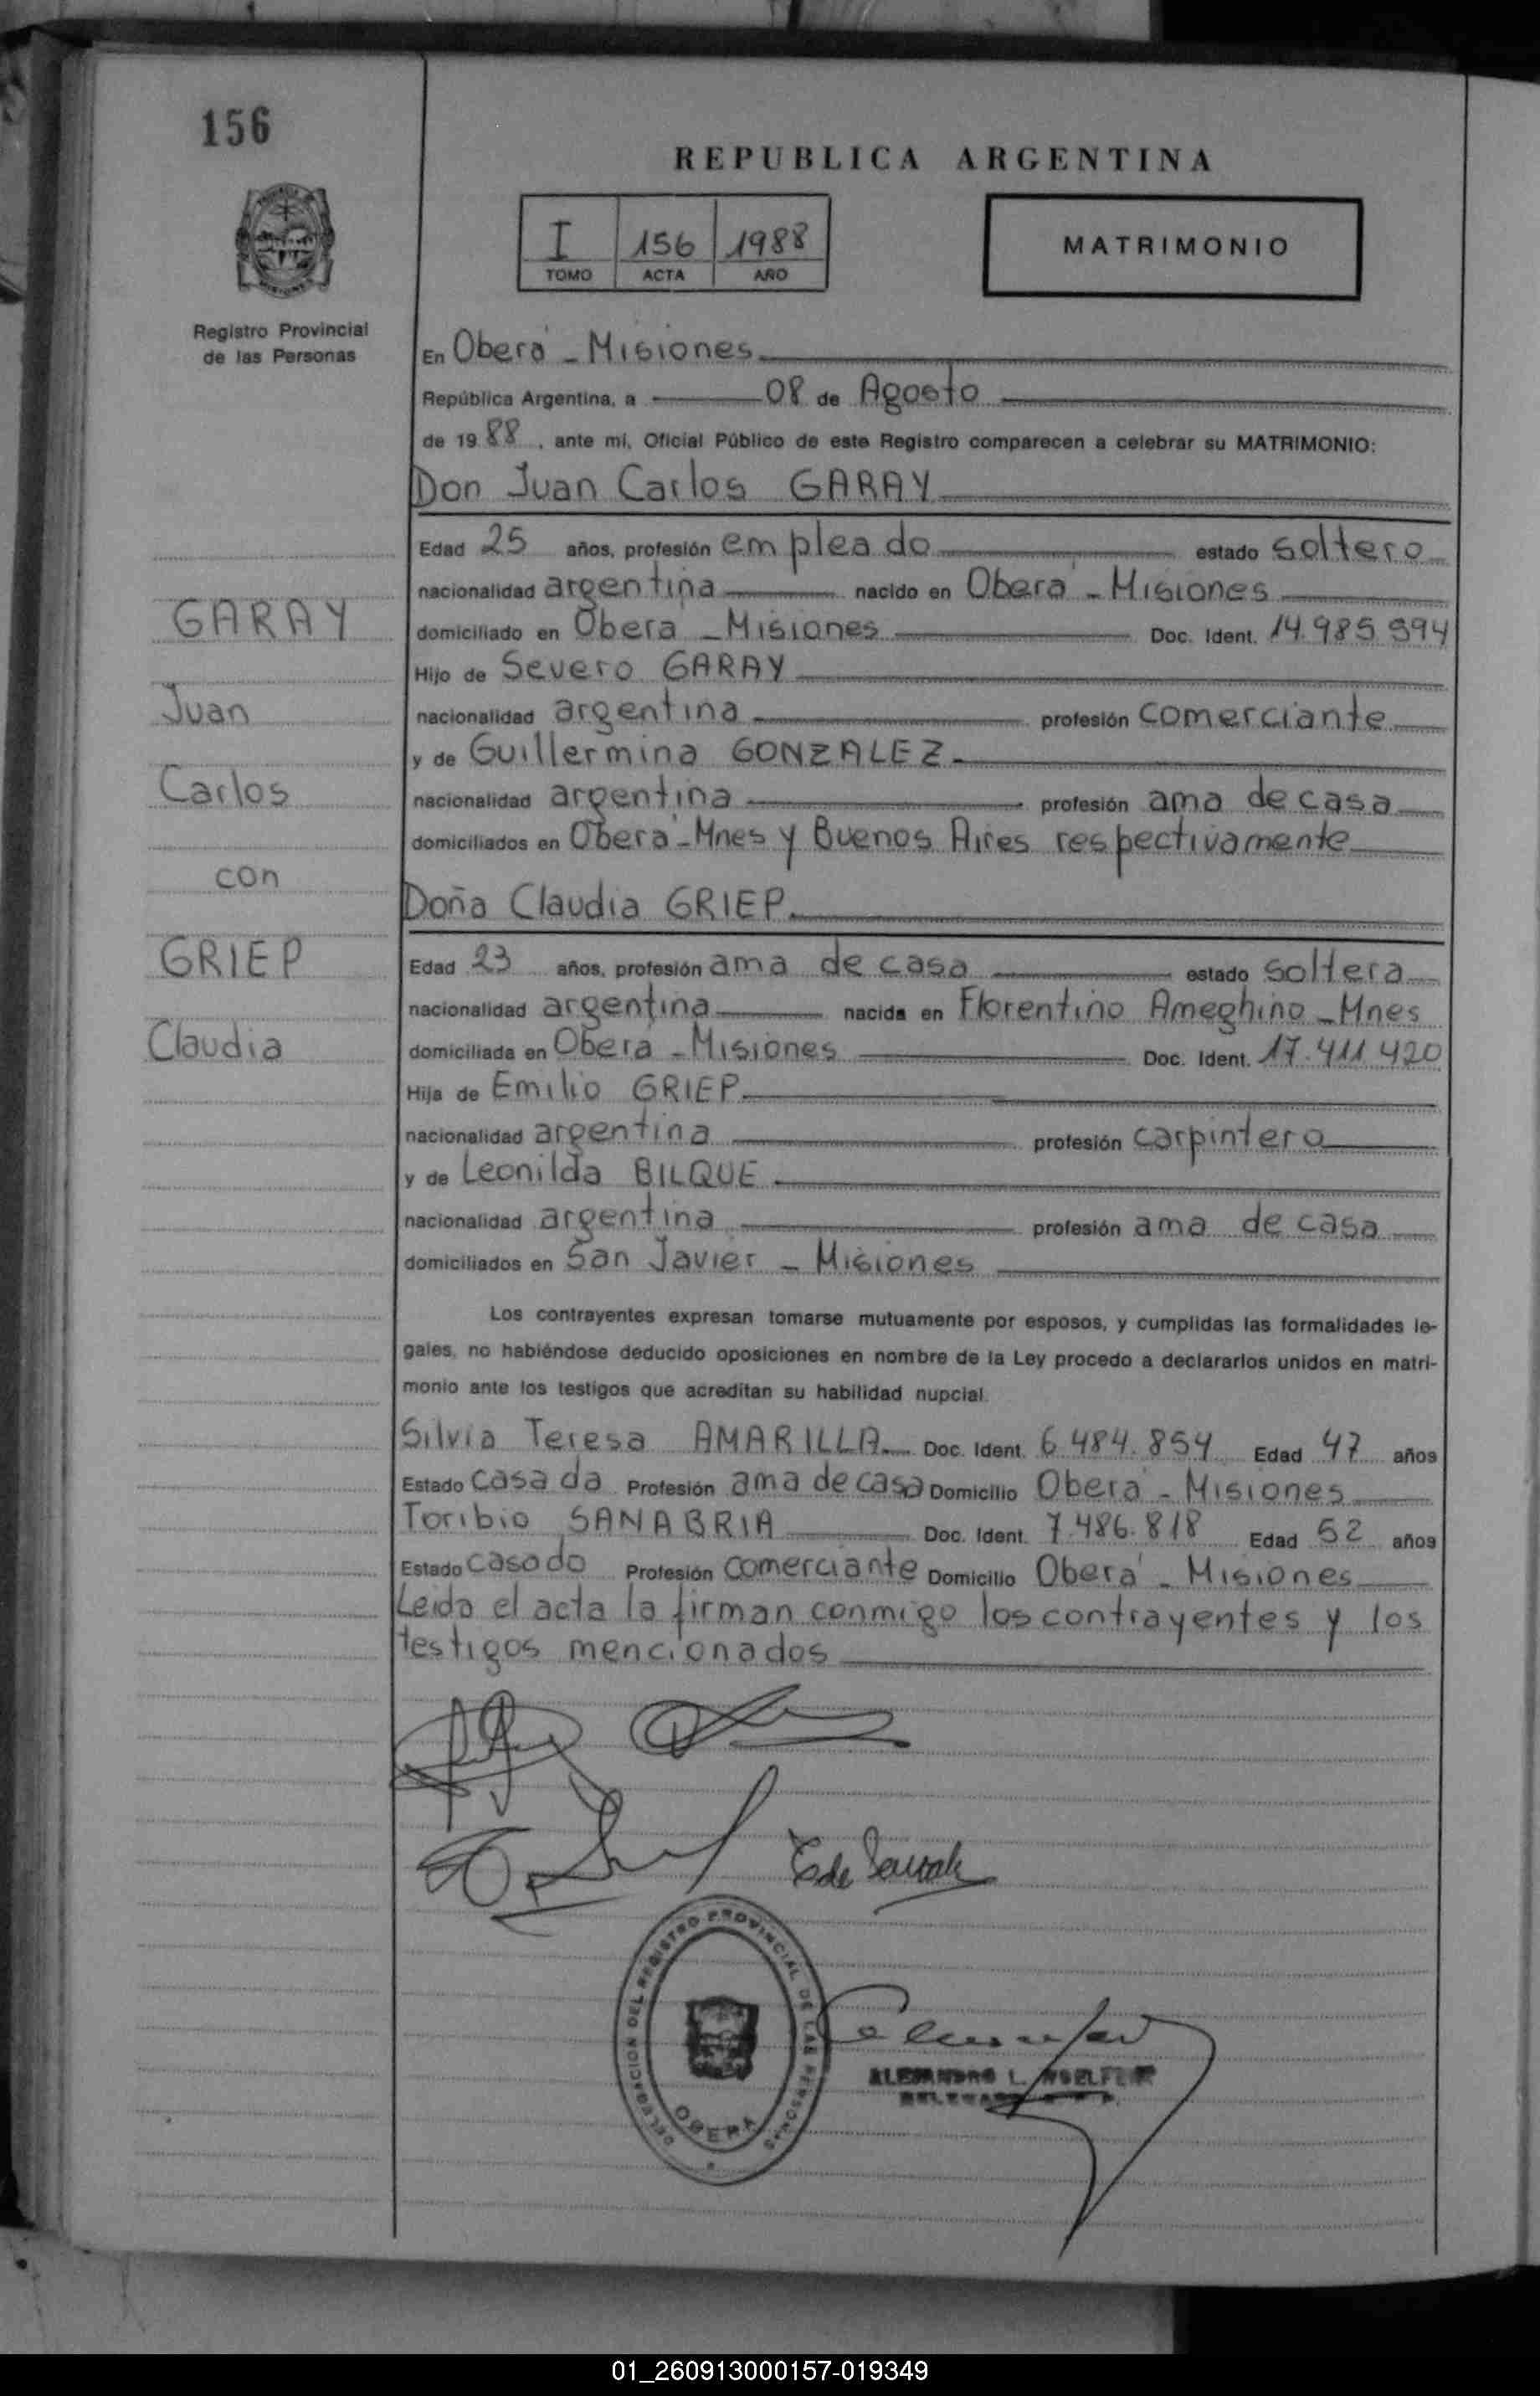 156
REPUBLICA ARGENTINA
I 156 1988
TOMO ACTA AÑO
MATRIMONIO
Registro Provincial
de las Personas
En Oberá - Misiones
República Argentina, a 08 de Agosto
de 19 88, ante mi, Oficial Público de este Registro comparecen a celebrar su MATRIMONIO:
Don Juan Carlos GARAY
Edad 25 años, profesión empleado estado soltero
nacionalidad argentina nacido en Oberá - Misiones
GARAY
domiciliado en Oberá - Misiones Doc. Ident. 14.985.994
Hijo de Severo GARAY
Juan
nacionalidad argentina profesión comerciante
y de Guillermina GONZALEZ
Carlos
nacionalidad argentina profesión ama de casa
domiciliados en Oberá - Mnes y Buenos Aires respectivamente
con
Doña Claudia GRIEP
GRIEP
Edad 23 años, profesión ama de casa estado soltera
nacionalidad argentina nacida en Florentino Ameghino - Mnes
Claudia
domiciliada en Oberá - Misiones Doc. Ident. 17.411.420
Hija de Emilio GRIEP
nacionalidad argentina profesión carpintero
y de Leonilda BILQUE
nacionalidad argentina profesión ama de casa
domiciliados en San Javier - Misiones
Los contrayentes expresan tomarse mutuamente por esposos, y cumplidas las formalidades le-
gales, no habiéndose deducido oposiciones en nombre de la Ley procedo a declararlos unidos en matri-
monio ante los testigos que acreditan su habilidad nupcial.
Silvia Teresa AMARILLA Doc. Ident. 6.484.854 Edad 47 años
Estado casada Profesión ama de casa Domicilio Oberá - Misiones
Toribio SANABRIA Doc. Ident. 7.486.818 Edad 52 años
Estado casado Profesión comerciante Domicilio Oberá - Misiones
Leida el acta la firman conmigo los contrayentes y los
testigos mencionados
DELEGACION DEL REGISTRO PROVINCIAL DE LAS PERSONAS
OBERA
ALEJANDRO L.
01_260913000157-019349